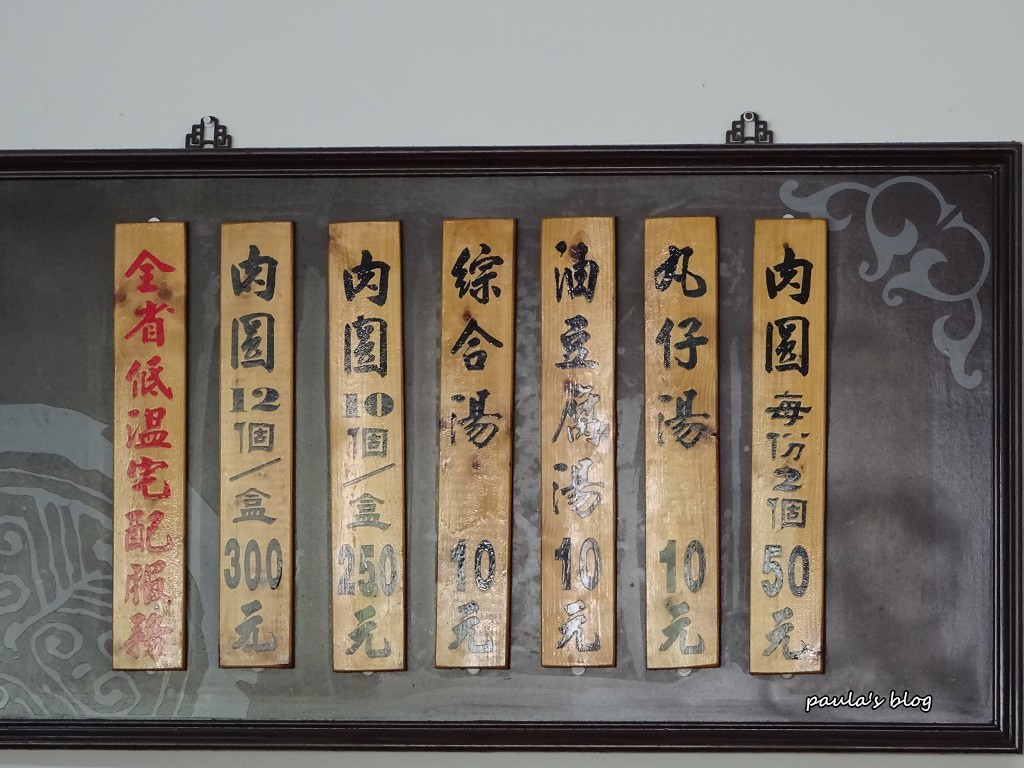 肉圓每份2個50元
丸仔湯10元
油豆腐湯10元
綜合湯10元
肉圓10個/盒250元
肉圓12個/盒300元
全省低溫宅配服務
paula's blog